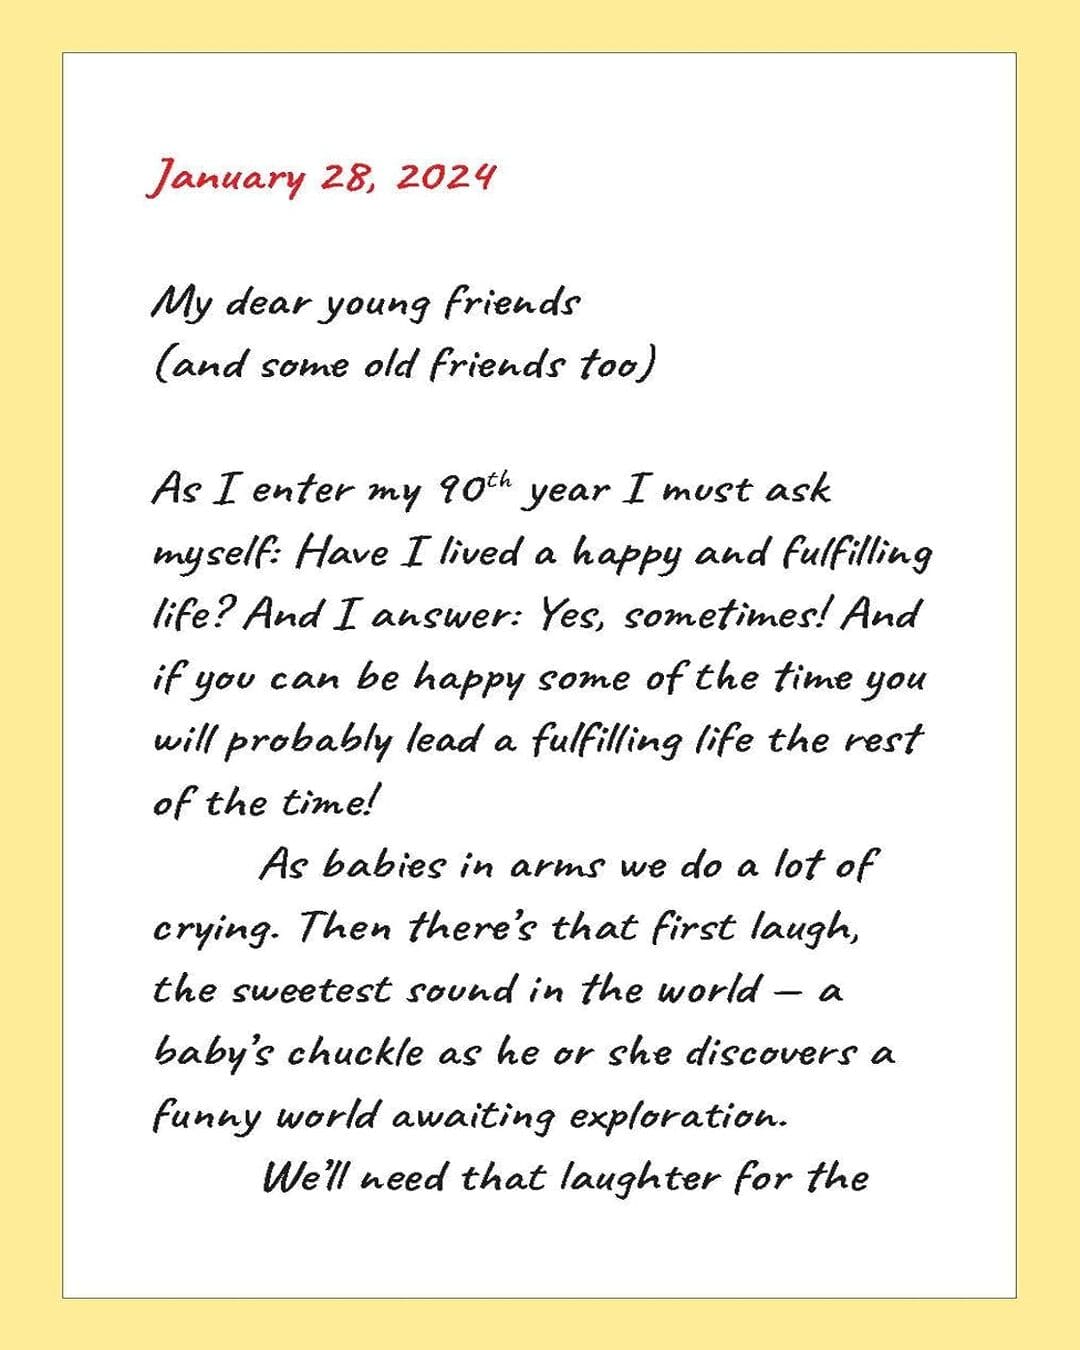 January 28, 2024
My dear young friends
(and some old friends too)
As I enter my 90th year I must ask
myself: Have I lived a happy and fulfilling
life? And I answer: Yes, sometimes! And
if you can be happy some of the time you
will probably lead a fulfilling life the rest
of the time!
As babies in arms we do a lot of
crying. Then there's that first laugh,
the sweetest sound in the world – a
baby's chuckle as he or she discovers a
funny world awaiting exploration.
We'll need that laughter for the